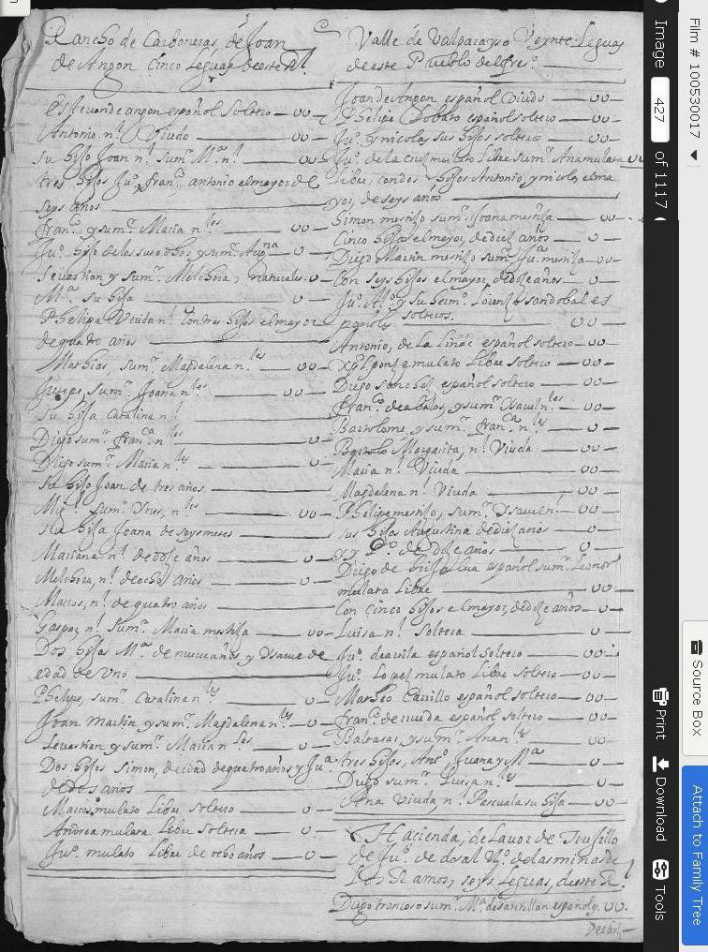 Rancho de Carboneras, de Joan
de Angon Cinco Leguas deste Pl.
Estevan de angon español soltero — vv —
Antonio, nl. Viudo — vv —
su hijo Joan nl. Sumr. Ma. nl. — vv —
tres hijos Juo. franco. antonio el mayor de
seys años
franco. y sumr. Maria nles — vv —
Juo. hijo de los suso dhos, y sumr. — v —
Sevastian y sumr. Melchora, naturales — v —
Ma. su hija — v —
Phelipa Viuda nl. Con tres hijos el mayor
de quatro años
Mathias, sumr. Magdalena nles — vv —
Juseph, Sumr. Joana nles — vv —
su hija Catalina nl.
Diego sumr. franca. nles — v —
Diego sumr. Maria nles — v —
su hijo Joan de tres años
Migl. Sumr. Ynes, nles — vv —
su hija Joana de seys meses
Mariana nl. de doze años — v —
Melchora, nl. de ocho años — v —
Marcos, nl. de quatro años
Gaspar, nl. Sumr. Maria mestiza — vv —
Dos hijas Ma. de nueve años y Ysavel de
edad de Uno
Phelipe, sumr. Catalina nles — v —
Joan Martin y sumr. Magdalena nles — v —
Sevastian y sumr. Maria nles — v —
Dos hijos Simon, de edad de quatro años y Jua.
de dos años
Marcos mulato Libre soltero — v —
Andrea mulata Libre soltera — v —
Juo. mulato Libre de ocho años — v —
Valle de Valparayso Veynte Leguas
de este Pueblo del
Joan de Angon español Viudo — vv —
Phelipe español soltero — vv —
Juo. y nicolas, sus hijos solteros — vv —
Juo. de la Cruz mulato Libre sumr. Ana mulata — vv
Libre, con dos hijos Antonio, y nicolas, el ma
yor, de seys años
Simon mestizo sumr. Joana mestiza — vv —
Cinco hijos el mayor, de diez años — v —
Diego Martin mestizo sumr. Jua. mestiza — vv —
Con seys hijos el mayor, de doze años — v —
Juo. y su herno. Lorenzo sandobal es
pañoles solteros. — vv —
Antonio, de la español soltero — vv —
mulato Libre soltero — vv —
Diego sanchez español soltero — vv —
franco. de abalos, y sumr. Ysavel nles — vv —
Bartolome, y sumr. franca. nles — v —
Margarita, nl. Viuda — vv —
Maria nl. Viuda — vv —
Magdalena nl. Viuda — vv —
Phelipe mestizo, sumr. Ysavel nl. — vv —
sus hijos Augustina de diez años — v —
de doze años — v —
Diego de español sumr. Leonor
mulata Libre — vv —
Con Cinco hijos el mayor, de doze años — v —
Luisa nl. soltera — v —
Juo. de avila español soltero — vv —
Juo. Lopez mulato Libre soltero — vv —
Matheo Carrillo español soltero — vv —
franco. de rueda español soltero — vv —
Baltasar, y sumr. Ana nles — vv —
tres hijos, Anto. Juana y Ma.
Diego sumr. Luisa nles — v —
Ana Viuda nl. Pascuala su hija — vv —
Hacienda, de Lavor de Trugillo
de Juo. de de las minas de
seys Leguas, deste Pl.
Diego troncoso sumr. Ma. de santillan españoles — vv.
Film # 100530017
Image 427 of 1117
Print
Download
Tools
Source Box
Attach to Family Tree